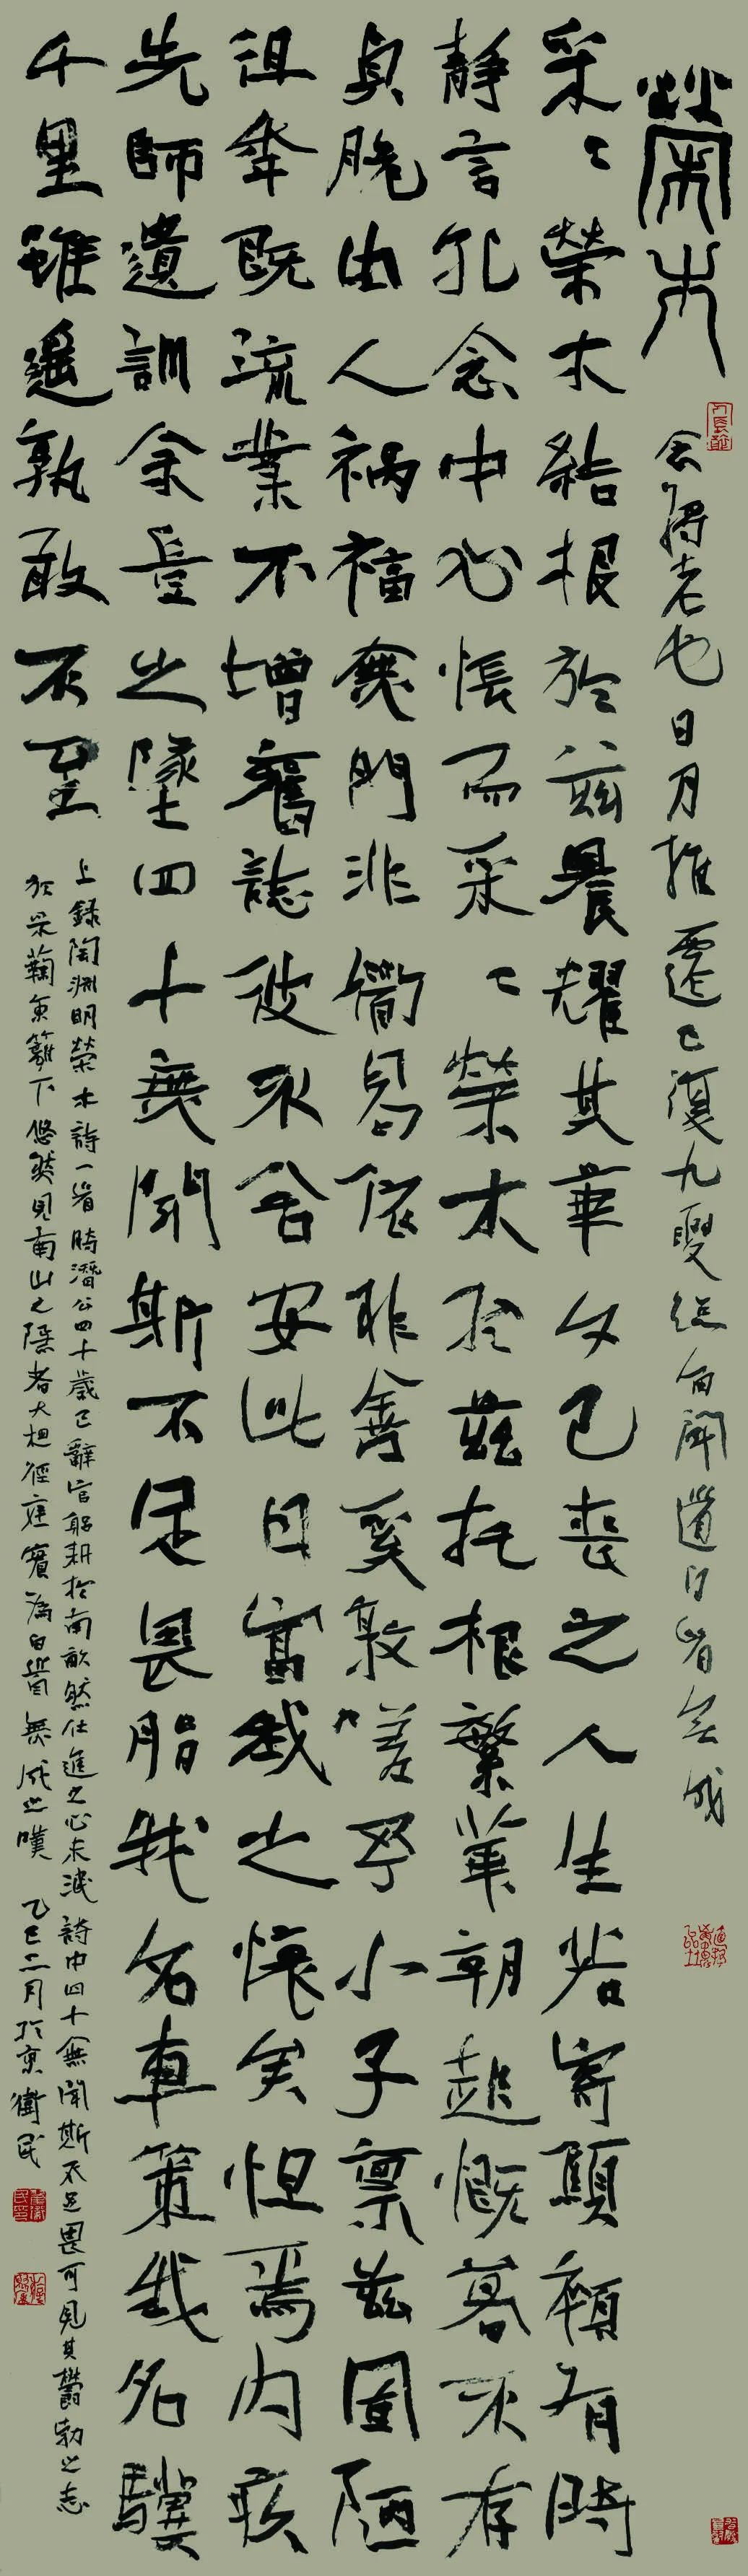 榮木
念將老也日月推遷已復九夏總角聞道白首無成
采〻榮木結根於兹晨耀其華夕已喪之人生若寄顦顇有時
靜言孔念中心悵而采〻榮木於茲托根繁華朝起慨暮不存
貞脆由人禍福無門非衟曷依非善奚敦嗟予小子禀兹固陋
徂年既流業不增舊誌彼不舍安此日富我之懷矣怛焉內疚
先師遺訓余豈之墜四十無聞斯不足畏脂我名車策我名驥
千里雖遥孰敢不至
上錄陶淵明榮木詩一首時潛公四十歲已辭官躬耕於南畝然仕進之心未泯詩中四十無聞斯不足畏可見其鬱勃之志
於采蘜東籬下悠然見南山之隱者大相徑庭實為白首無成之嘆 乙巳二月於京衛民